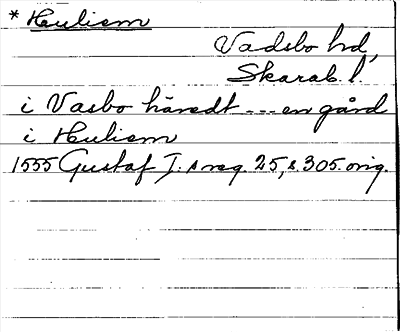 * Heuliem
Vadsbo hd,
Skarab. l.
i Vasbo häredt --- en gård
i Heuliem
1555 Gustaf I:s reg. 25, s. 305. orig.